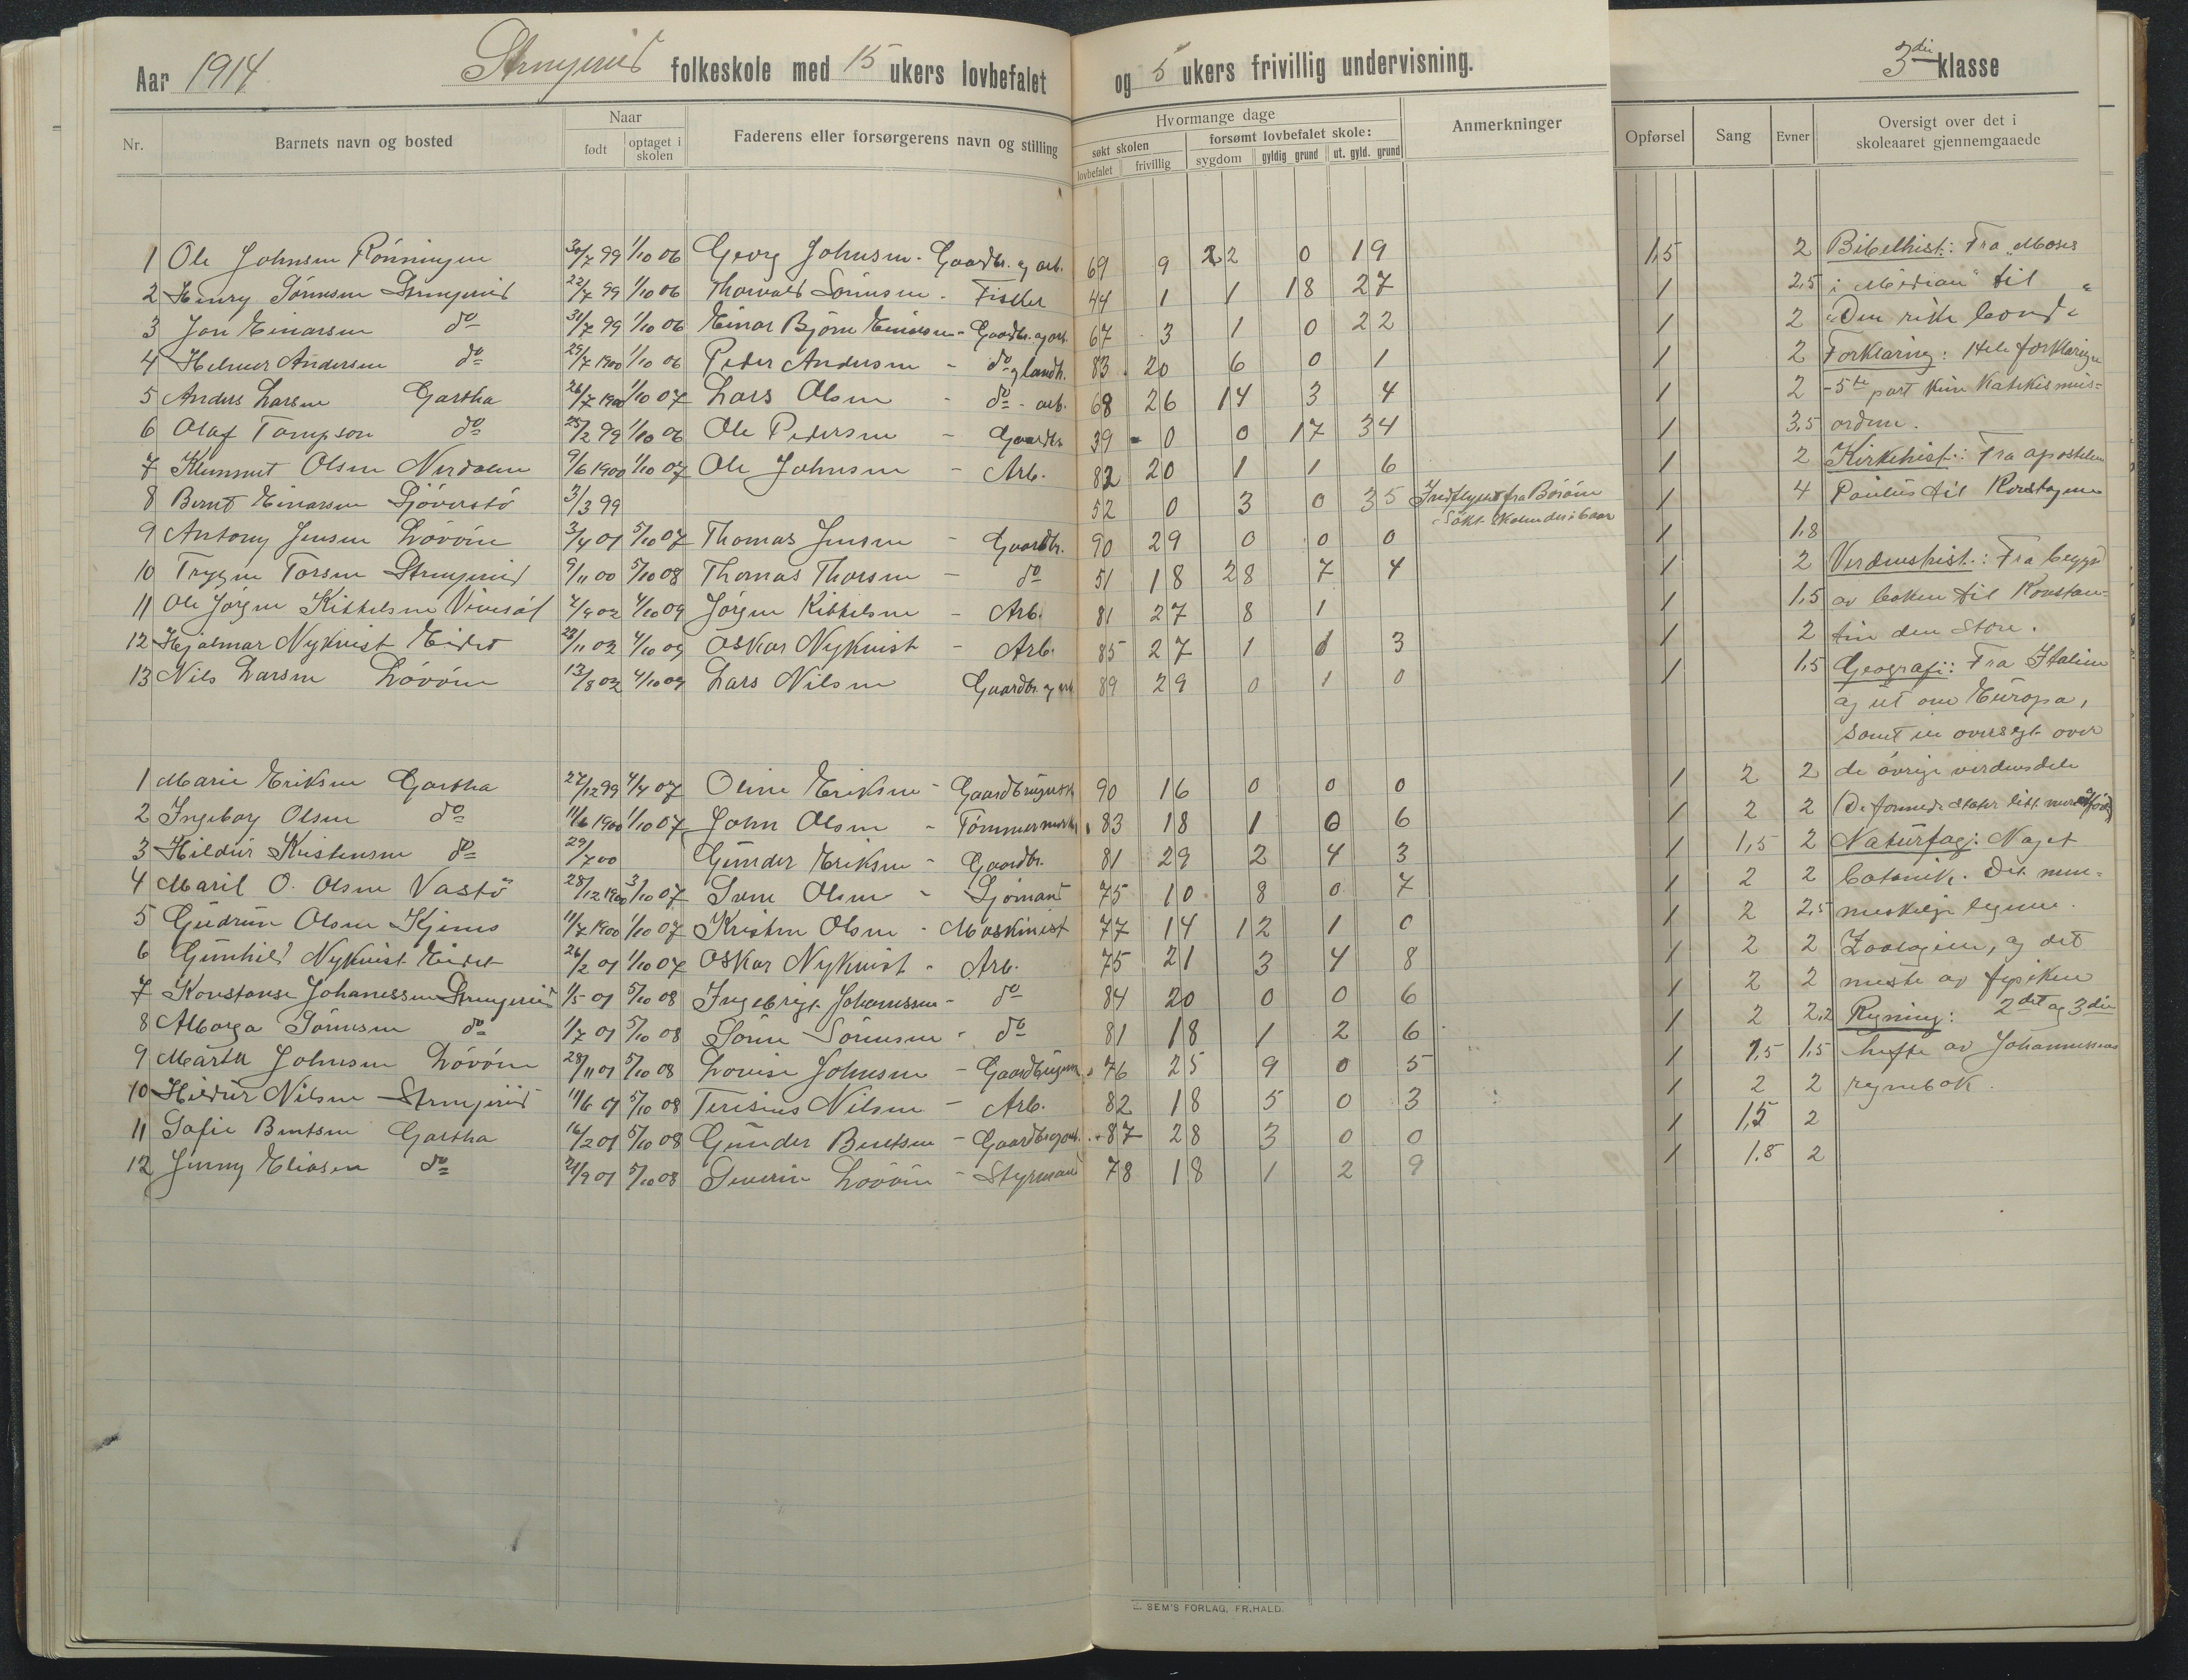 Aar 1914 folkeskole med 15 ukers lovbefalet og 5 ukers frivillig undervisning. 3die klasse
Nr. Barnets navn og bosted Naar født optaget i skolen Faderens eller forsørgerens navn og stilling Hvormange dage søkt skolen lovbefalet frivillig forsømt lovbefalet skole: sygdom gyldig grund ut. gyld. grund Anmerkninger Opførsel Sang Evner Oversigt over det i skoleaaret gjennemgaaede
1 Ole Johnsen Rönningen 30/7 99 1/10 06 Georg Johnsen - Gaardbr. og arb. 69 9 22 0 19 1,5 2 Bibelhist.: Fra "Moses
2 Henry Sörensen 22/7 99 1/10 06 Thorvald Sörensen - Fisker 44 1 1 18 27 1 2,5 i Midian" til "
3 Jon Einarsen do 31/7 99 1/10 06 Einar Björn Einarsen - Gaardbr. og arb. 67 3 1 0 22 1 2 "Den rike bonde
4 Helmer Andersen do 29/7 1900 1/10 06 Peder Andersen - do og landh. 83 20 6 0 1 1 2 Forklaring: Hele forklaringen
5 Anders Larsen Gartha 26/7 1900 1/10 07 Lars Olsen - do - arb. 68 26 14 3 4 1 2 - 5te part kun katekismus=
6 Olaf Tompson do 25/2 99 1/10 06 Ole Pedersen - Gaardbr. 39 0 0 17 34 1 3,5 ordene.
7 Klemmet Olsen Nerdalen 9/6 1900 1/10 07 Ole Johnsen - Arb. 82 20 1 1 6 1 2 Kirkehist.: Fra apostelen
8 Bernt Einarsen Sjöverstö 3/3 99 52 0 3 0 35 Indflyttet fra Boröen 1 4 Paulus til Korstogene
Søkt skolen der i 6 aar
9 Antony Jensen Lövöen 3/4 01 5/10 07 Thomas Jensen - Gaardbr. 90 29 0 0 0 1 1.8
10 Trygve Torsen 9/11 00 5/10 08 Thomas Thorsen - do 51 18 28 7 4 1 2 Verdenshist.: Fra begyn
11 Ole Jörgen Kittelsen 2/9 02 4/10 09 Jörgen Kittelsen - Arb. 81 27 8 1 1 1,5 av boken til Konstan=
12 Hjalmar Nykvist Eidet 23/11 02 4/10 09 Oskar Nykvist - Arb. 85 27 1 1 3 1 2 tin den store.
13 Nils Larsen Lövöen 13/8 02 4/10 09 Lars Nilsen Gaardbr. og arb. 89 29 0 1 0 1 1,5 Geografi: Fra Italien
og ut om Europa,
samt en oversigt over
1 Marie Eriksen Gartha 27/12 99 4/4 07 Oline Eriksen - 90 16 0 0 0 1 2 2 de övrige verdensdele
2 Ingeborg Olsen do 11/6 1900 1/10 07 John Olsen - Tömmermand 83 18 1 0 6 1 2 2 (De forenede stater litt mere
3 Hildur Kristensen do 29/7 00 Gunder Eriksen - Gaardbr. 81 29 2 4 3 1 1,5 2 Naturfag: Noget
4 Maril O. Olsen Vastö 28/12 1900 3/10 07 Sven Olsen - Sjömand 75 10 8 0 7 1 2 2 botanik. Det men=
5 Gudrun Olsen Kjenes 11/7 1900 1/10 07 Kristen Olsen - Maskinist 77 14 12 1 0 1 2 2,5 neskelige legeme.
6 Gunhild Nykvist Eidet 26/2 01 1/10 07 Oskar Nykvist - Arb. 75 21 3 4 8 1 2 2 Zoologien, og det
7 Konstanse Johanessen 1/5 01 5/10 08 Ingebrigt Johannessen - do 84 20 0 0 6 1 2 2 meste av fysiken
8 Alborga Sörensen do 1/7 01 5/10 08 Sören Sörensen - do 81 18 1 2 6 1 2 2,2 Regning: 2det og 3die
9 Märta Johnsen Lövöen 28/11 01 5/10 08 Lovise Johnsen - 76 25 9 0 5 1 1,5 1,5 hefte av Johannessens
10 Hildur Nilsen 11/6 01 5/10 08 Teresius Nilsen - Arb. 82 18 5 0 3 1 2 2 regnebok.
11 Sofie Berntsen Gartha 16/2 01 5/10 08 Gunder Berntsen - Gaardbr. og arb. 87 28 3 0 0 1 1,5 2
12 Jenny Eliasen do 21/9 01 5/10 08 Severin Lövöen - Styrmand 78 18 1 2 9 1 1.8 2
E. SEM'S FORLAG, FR.HALD.